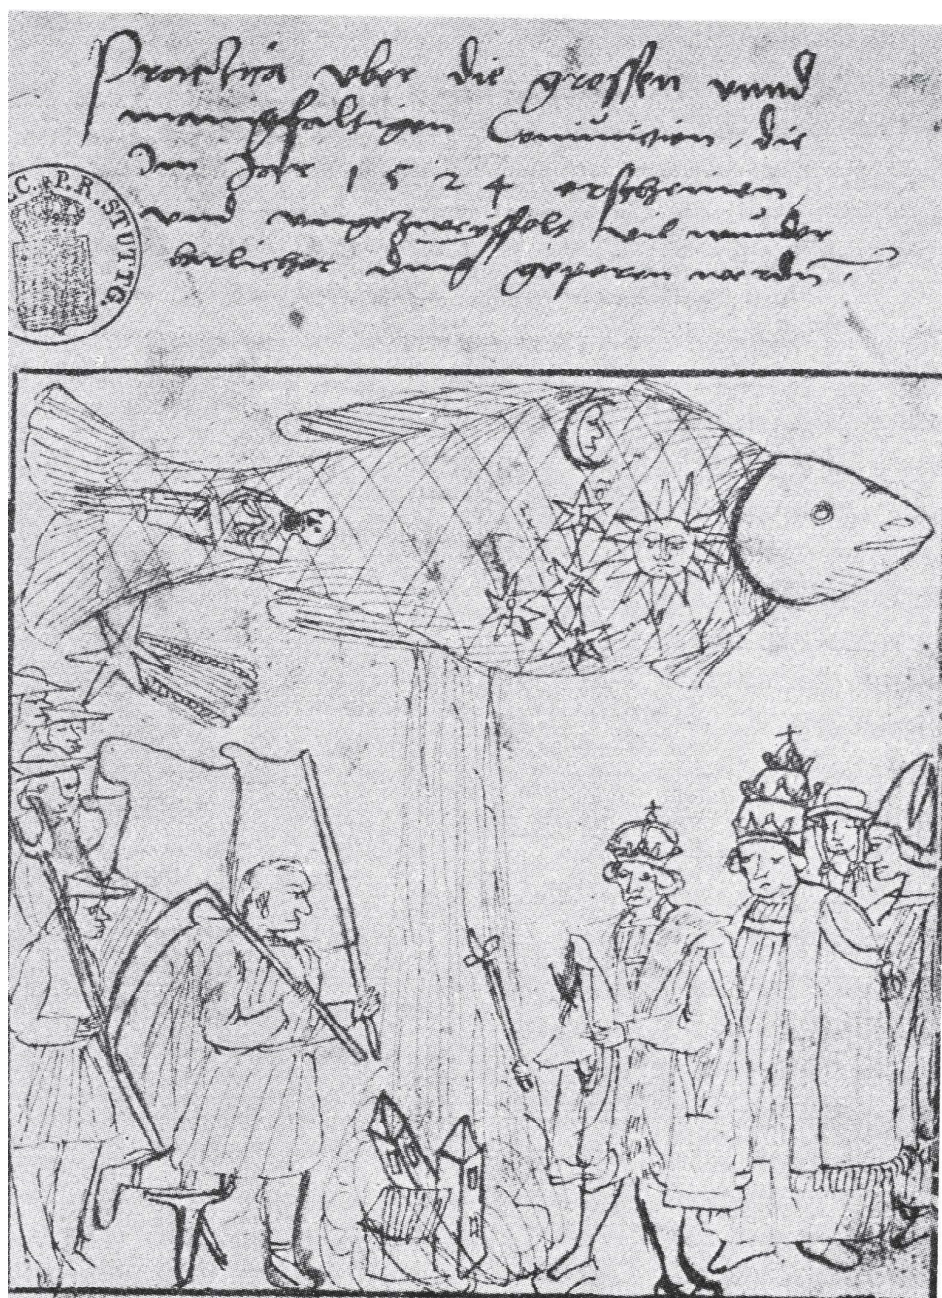 Practica vber die grossen vnnd
manigfaltigen Coniunction, die
Im Jar 1524 erscheinen
vnd vngezweiffelt vil wunder
barlicher ding geperen werden.
C. P. R. STUTTG.